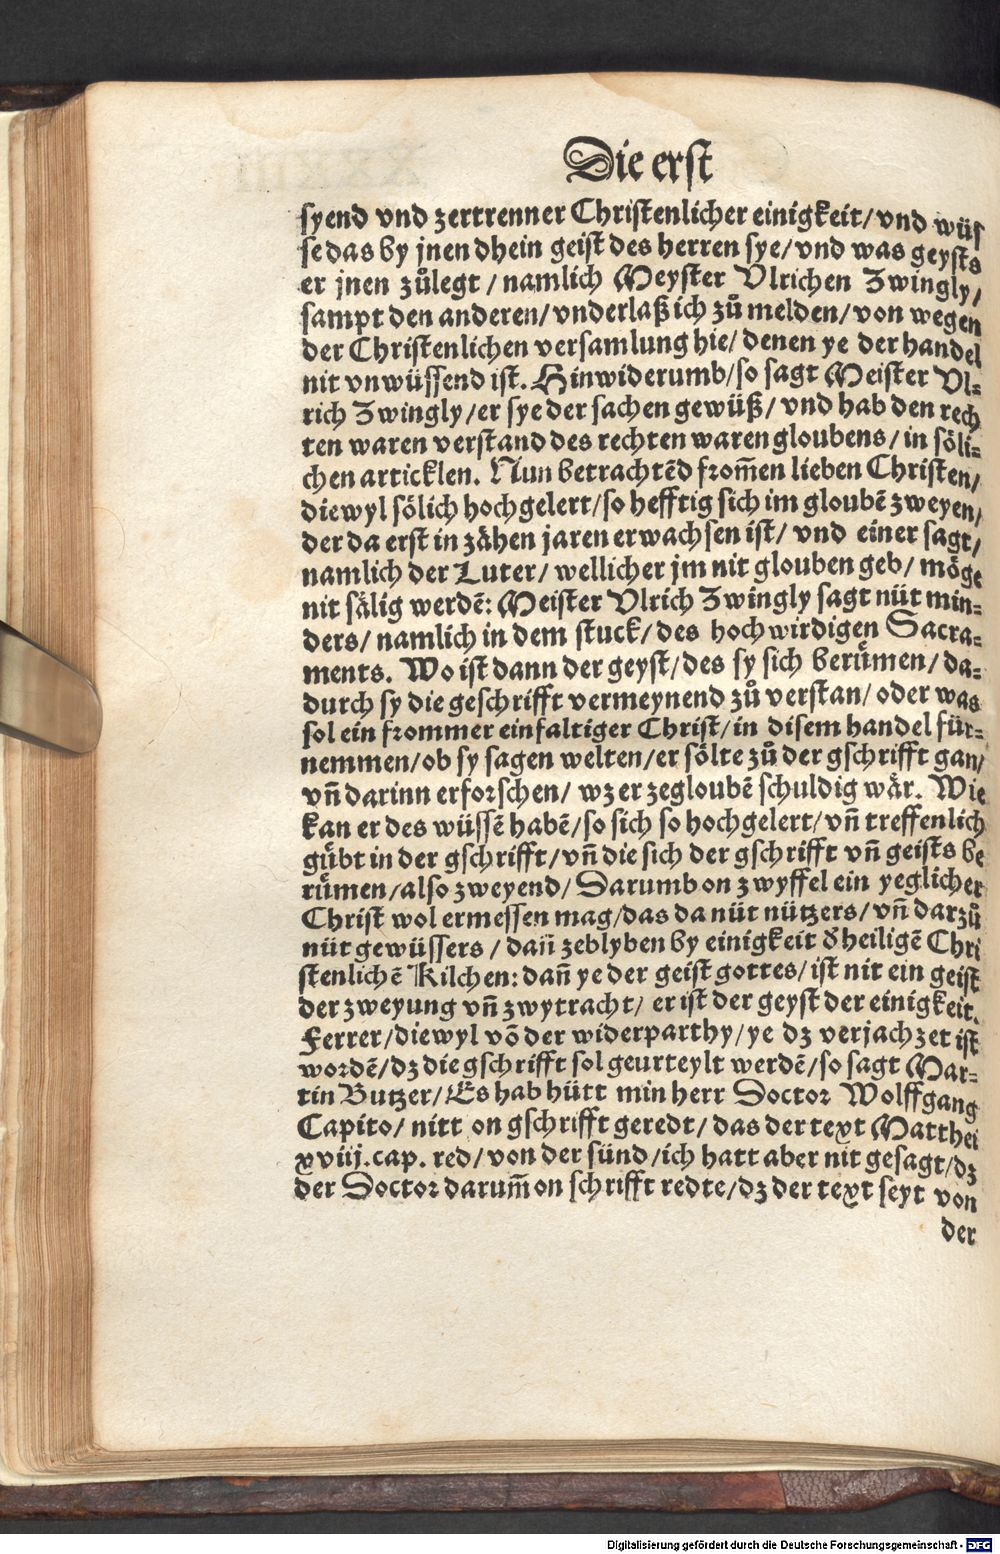 Die erst
syend vnd zertrenner Christenlicher einigkeit/ vnd wüs
se das by jnen dhein geist des herren sye/ vnd was geysts
er jnen zůlegt / namlich Meyster Vlrichen Zwingly/
sampt den anderen/ vnderlaß ich zů melden/ von wegen
der Christenlichen versamlung hie/ denen ye der handel
nit vnwüssend ist. Hinwiderumb/ so sagt Meister Vl⸗
rich Zwingly/ er sye der sachen gewüß/ vnd hab den rech
ten waren verstand des rechten waren gloubens/ in söli⸗
chen articklen. Nun betrachtēd from̄en lieben Christen/
diewyl sölich hochgelert/ so hefftig sich im gloubē zweyen/
der da erst in zähen jaren erwachsen ist/ vnd einer sagt/
namlich der Luter/ wellicher jm nit glouben geb/ möge
nit sälig werdē: Meister Vlrich Zwingly sagt nüt min⸗
ders/ namlich in dem stuck/ des hochwirdigen Sacra⸗
ments. Wo ist dann der geyst/ des sy sich berümen/ da⸗
durch sy die geschrifft vermeynend zů verstan/ oder was
sol ein frommer einfaltiger Christ/ in disem handel für⸗
nemmen/ ob sy sagen welten/ er sölte zů der gschrifft gan/
vn̄ darinn erforschen/ wz er zegloubē schuldig wär. Wie
kan er des wüssē habē/ so sich so hochgelert/ vn̄ treffenlich
gübt in der gschrifft/ vn̄ die sich der gschrifft vn̄ geists be
rümen/ also zweyend/ Darumb on zwyffel ein yeglicher
Christ wol ermessen mag/ das da nüt nützers/ vn̄ darzů
nüt gewüssers / dan̄ zeblyben by einigkeit d̕ heiligē Chri
stenlichē Kilchen: dan̄ ye der geist gottes/ ist nit ein geist
der zweyung vn̄ zwytracht/ er ist der geyst der einigkeit.
Ferrer/ diewyl vō der widerparthy/ ye dz verjachzet ist
wordē/ dz die gschrifft sol geurteylt werdē/ so sagt Mar⸗
tin Butzer/ Es hab hütt min herr Doctor Wolffgang
Capito/ nitt on gschrifft geredt/ das der text Matthei
xviij. cap. red/ von der sünd/ ich hatt aber nit gesagt/ dz
der Doctor darum̄ on schrifft redte/ dz der text seyt von
der
Digitalisierung gefördert durch die Deutsche Forschungsgemeinschaft - DFG